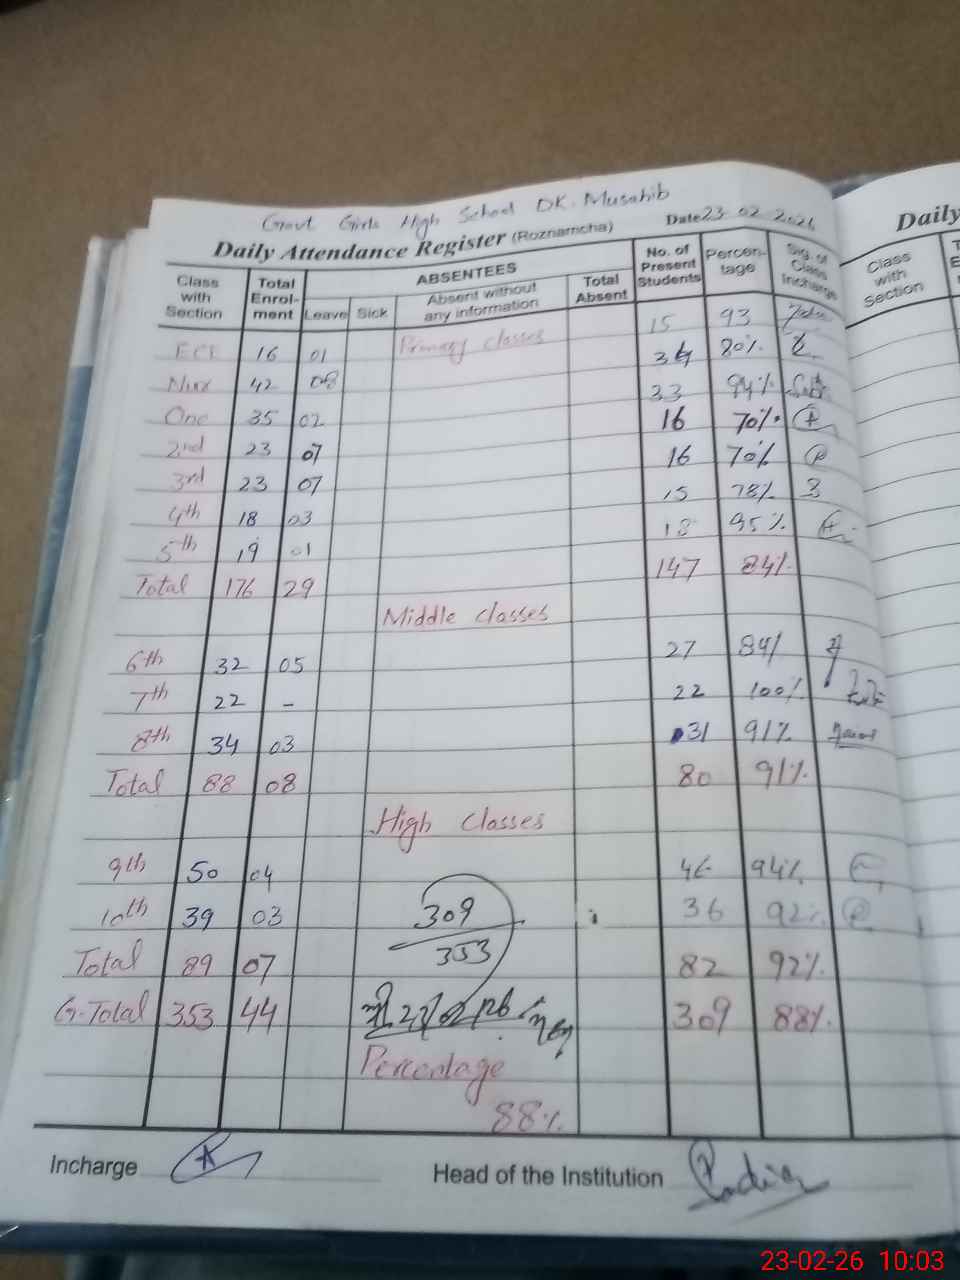 Govt Girls High School DK. Musahib
Daily Attendance Register (Roznamcha) Date 23-02-2026
Class with Section Total Enrol-ment ABSENTEES Leave Sick Absent without any information Total Absent No. of Present Students Percen-tage Sig. of Class Incharge
Primary classes
ECE 16 01 15 93
Nur 42 08 34 80%
One 35 02 33 94%
2nd 23 07 16 70%
3rd 23 07 16 70%
4th 18 03 15 78%
5th 19 01 18 95%
Total 176 29 147 84%
Middle classes
6th 32 05 27 84%
7th 22 - 22 100%
8th 34 03 31 91%
Total 88 08 80 91%
High Classes
9th 50 04 46 94%
10th 39 03 36 92%
309
353
Total 89 07 82 92%
G.Total 353 44 309 88%
Percentage
88%
Incharge Head of the Institution
Daily
Class with Section
23-02-26 10:03